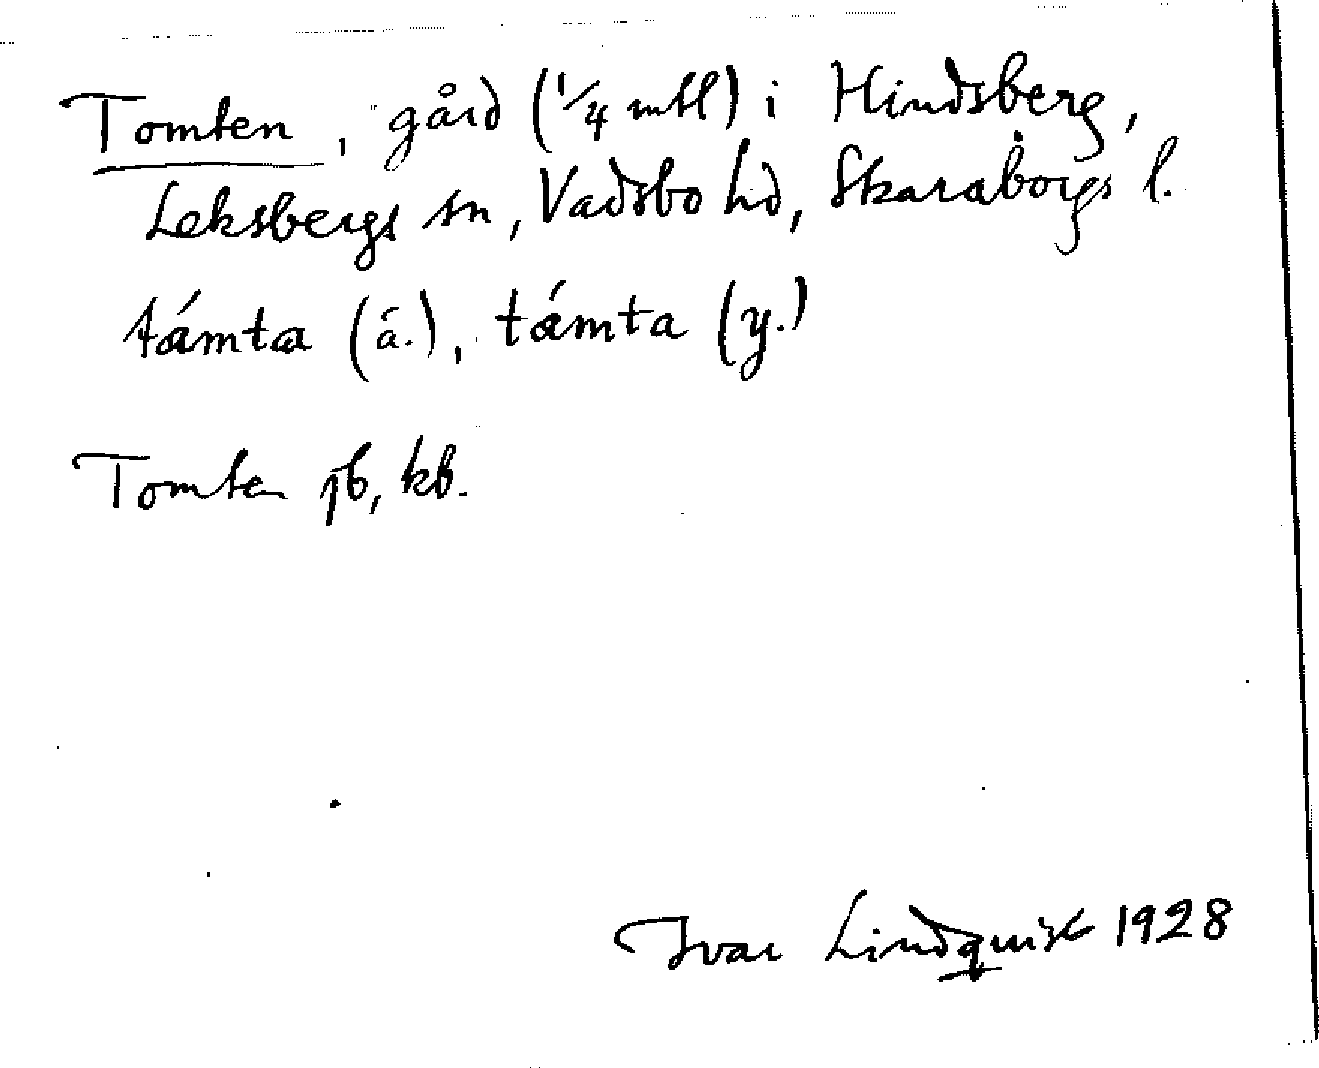 Tomten, gård (1/4 mtl) i Hindsberg,
Leksbergs sn, Vadsbo hd, Skaraborgs l.
támta (ä.), támta (y.)
Tomten jb, kb.
Ivar Lindquist 1928